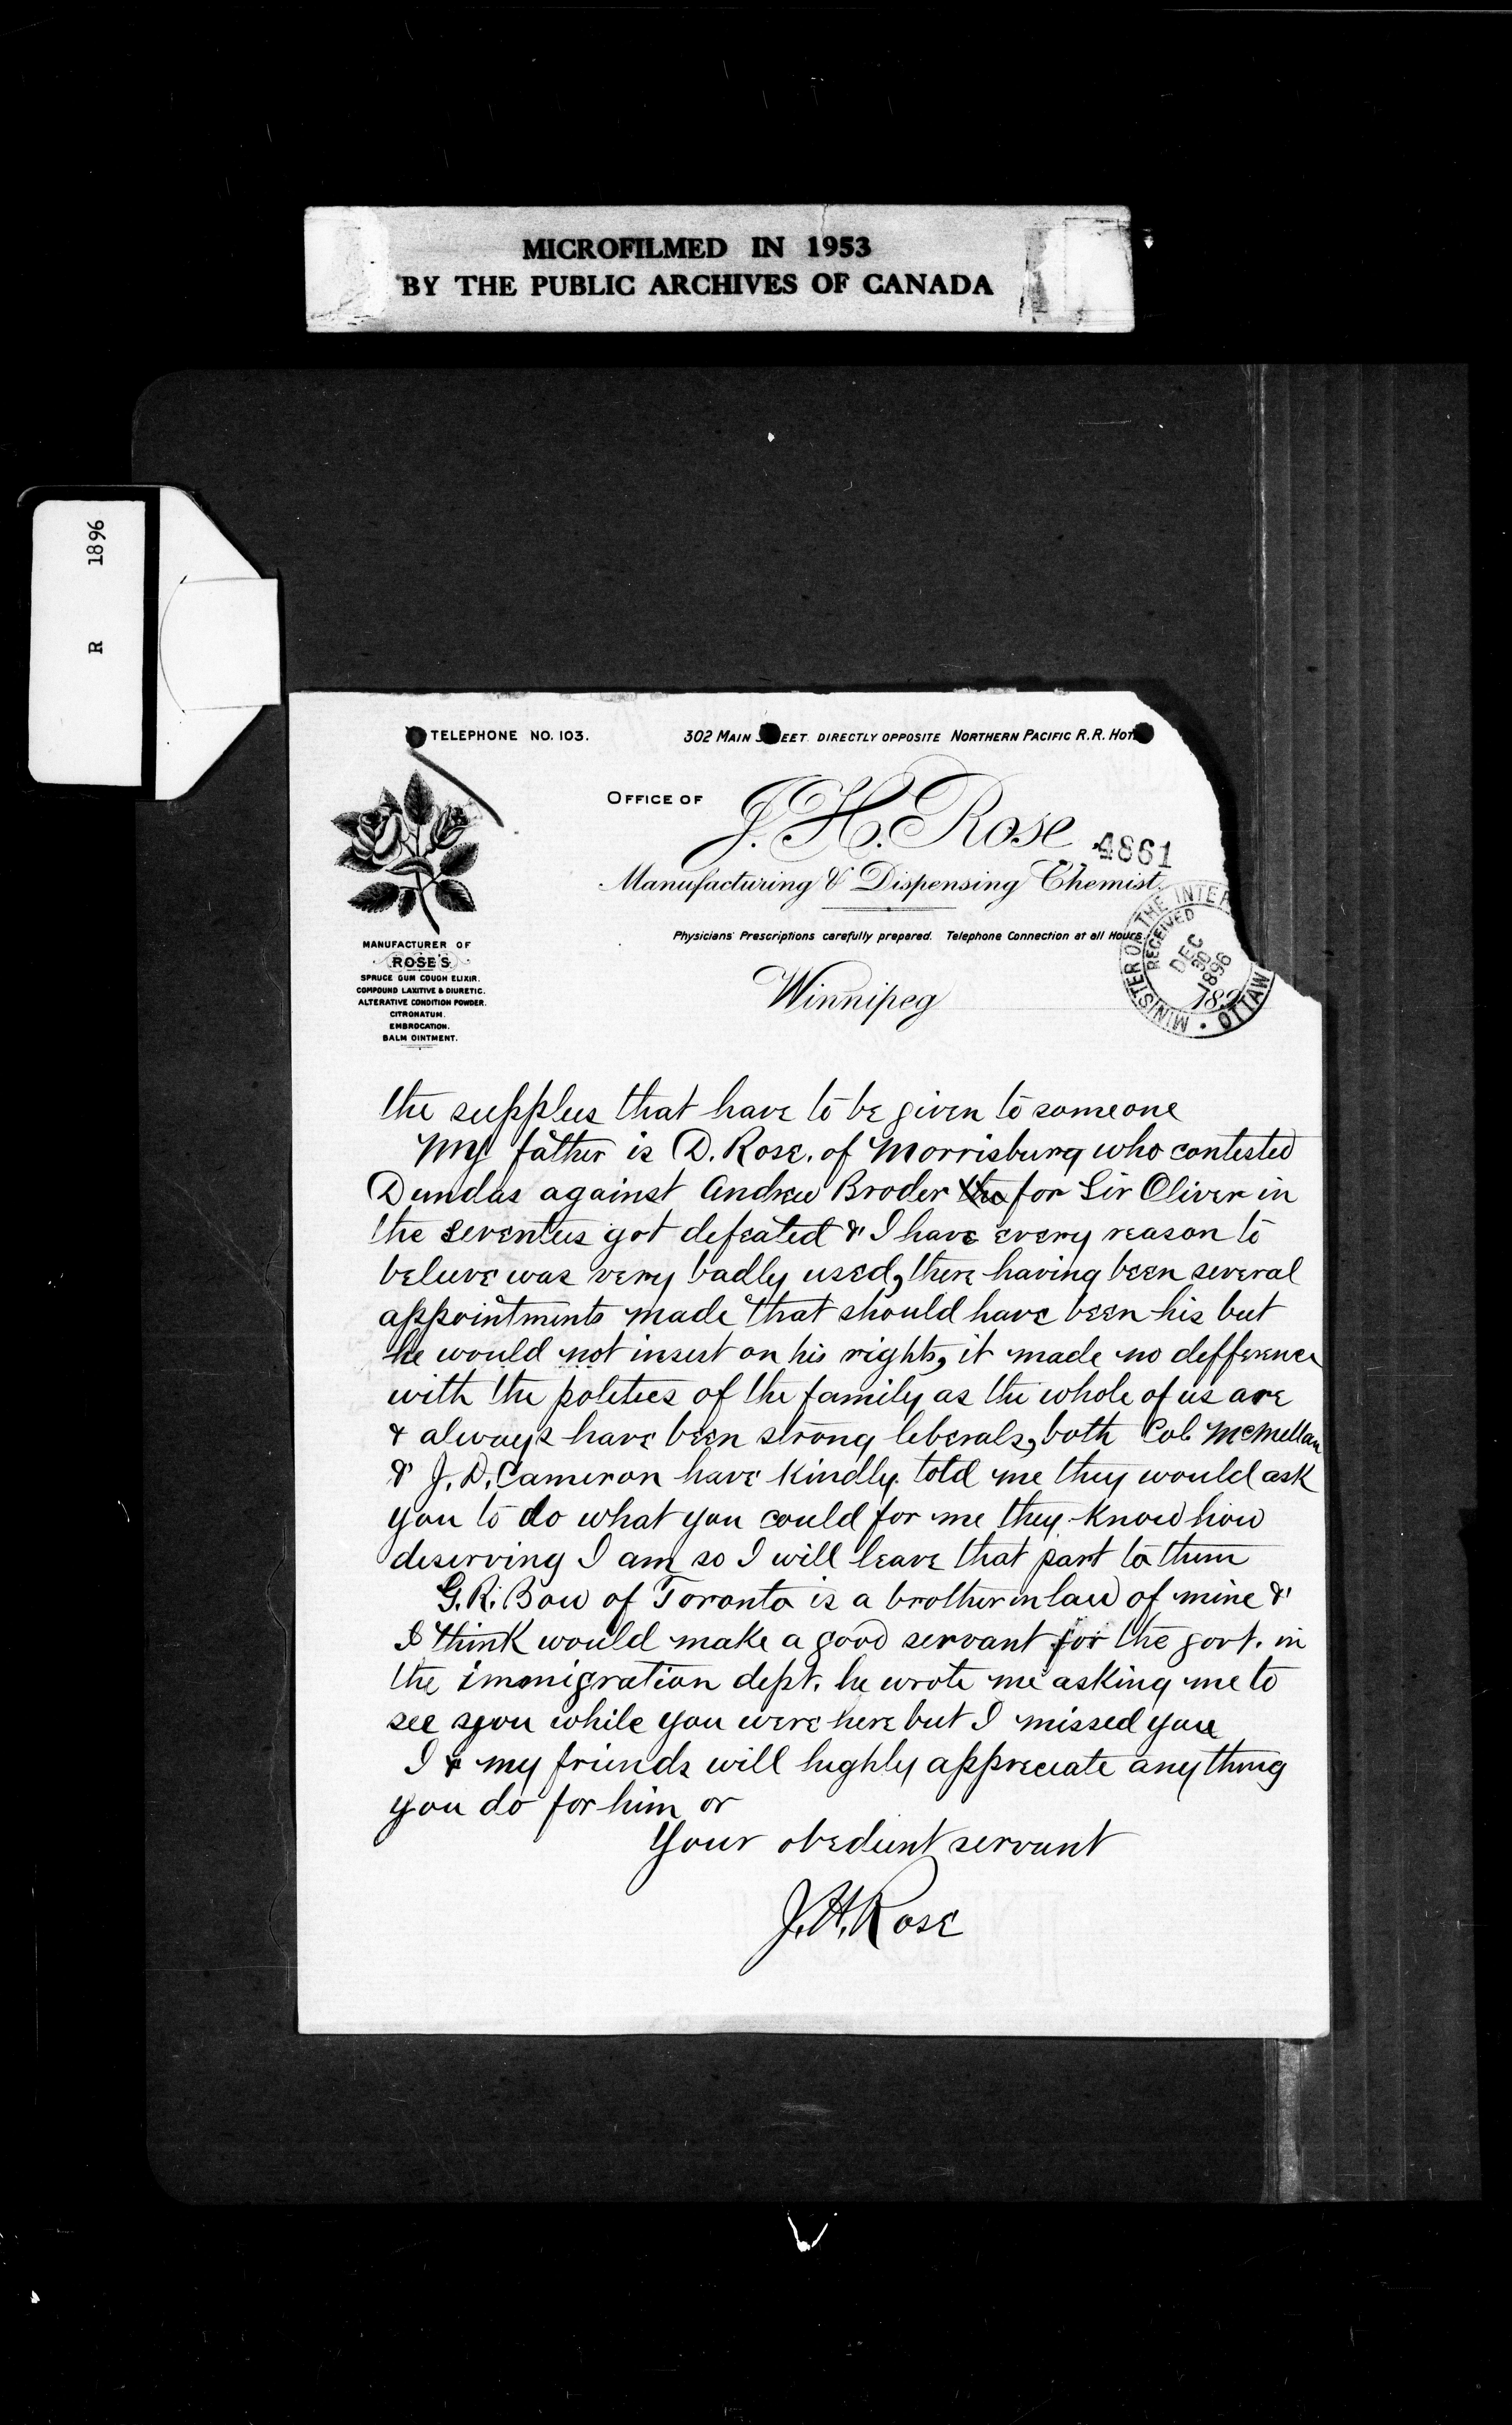 MICROFILMED IN 1953
BY THE PUBLIC ARCHIVES OF CANADA
R 1896
TELEPHONE NO. 103.
302 MAIN S EET. DIRECTLY OPPOSITE NORTHERN PACIFIC R.R. HOT
OFFICE OF
J. H. Rose
4861
Manufacturing & Dispensing Chemist.
Physicians' Prescriptions carefully prepared. Telephone Connection at all Hours.
MINISTER OF THE INTER
RECEIVED
DEC
30
1896
OTTAW
Winnipeg 189
MANUFACTURER OF
ROSE'S
SPRUCE GUM COUGH ELIXIR.
COMPOUND LAXITIVE & DIURETIC.
ALTERATIVE CONDITION POWDER.
CITRONATUM.
EMBROCATION.
BALM OINTMENT.
the supplies that have to be given to someone
My father is D. Rose. of Morrisburg who contested
Dundas against Andrew Broder the for Sir Oliver in
the seventies got defeated & I have every reason to
believe was very badly used, there having been several
appointments made that should have been his but
he would not insist on his rights, it made no defference
with the politics of the family as the whole of us are
& always have been strong liberals, both Col. McMillan
& J. D. Cameron have kindly told me they would ask
you to do what you could for me they know how
deserving I am so I will leave that part to them
G. R. Bow of Toronto is a brother in law of mine &
I think would make a good servant for the govt. in
the immigration dept. he wrote me asking me to
see you while you were here but I missed you
I & my friends will highly appreciate any thing
you do for him or
Your obedient servant
J. H. Rose